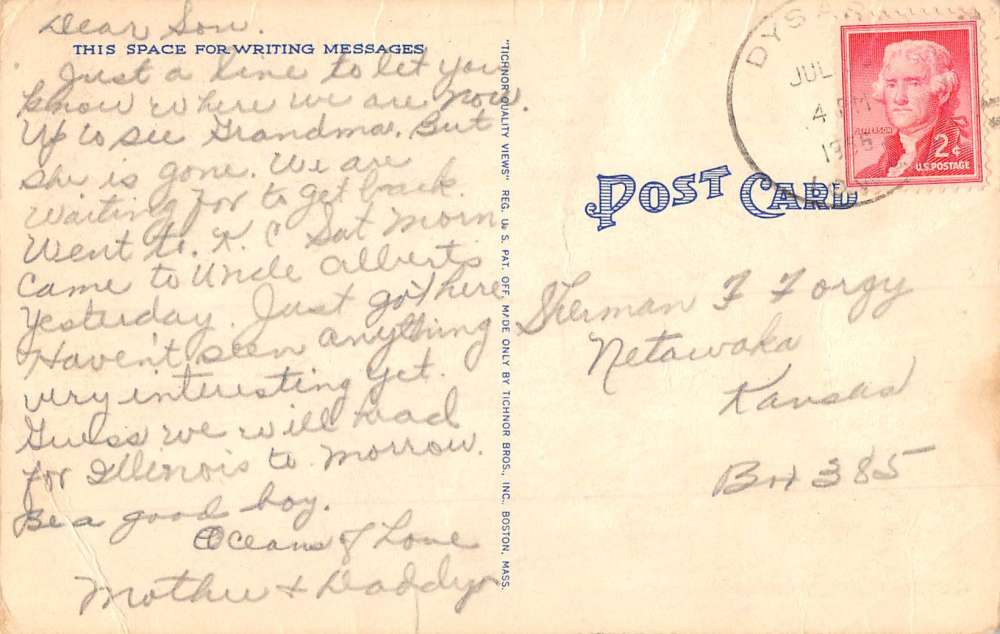 Dear Son.
THIS SPACE FOR WRITING MESSAGES
Just a line to let you
know where we are now.
Up to see Grandma. But
she is gone. We are
waiting for to get back.
Went to K. C Sat Morn
Came to Uncle Alberts
Yesterday. Just got here
Haven't seen anything
very interesting yet.
Guess we will head
for Illinois to morrow.
Be a good boy.
Oceans of Love
Mother + Daddy
"TICHNOR QUALITY VIEWS" REG. U. S. PAT. OFF. MADE ONLY BY TICHNOR BROS., INC., BOSTON, MASS.
POST CARD
DYSAR
JUL
4 PM
JEFFERSON
2¢
U.S. POSTAGE
Sherman F Forgy
Netawaka
Kansas
Box 385